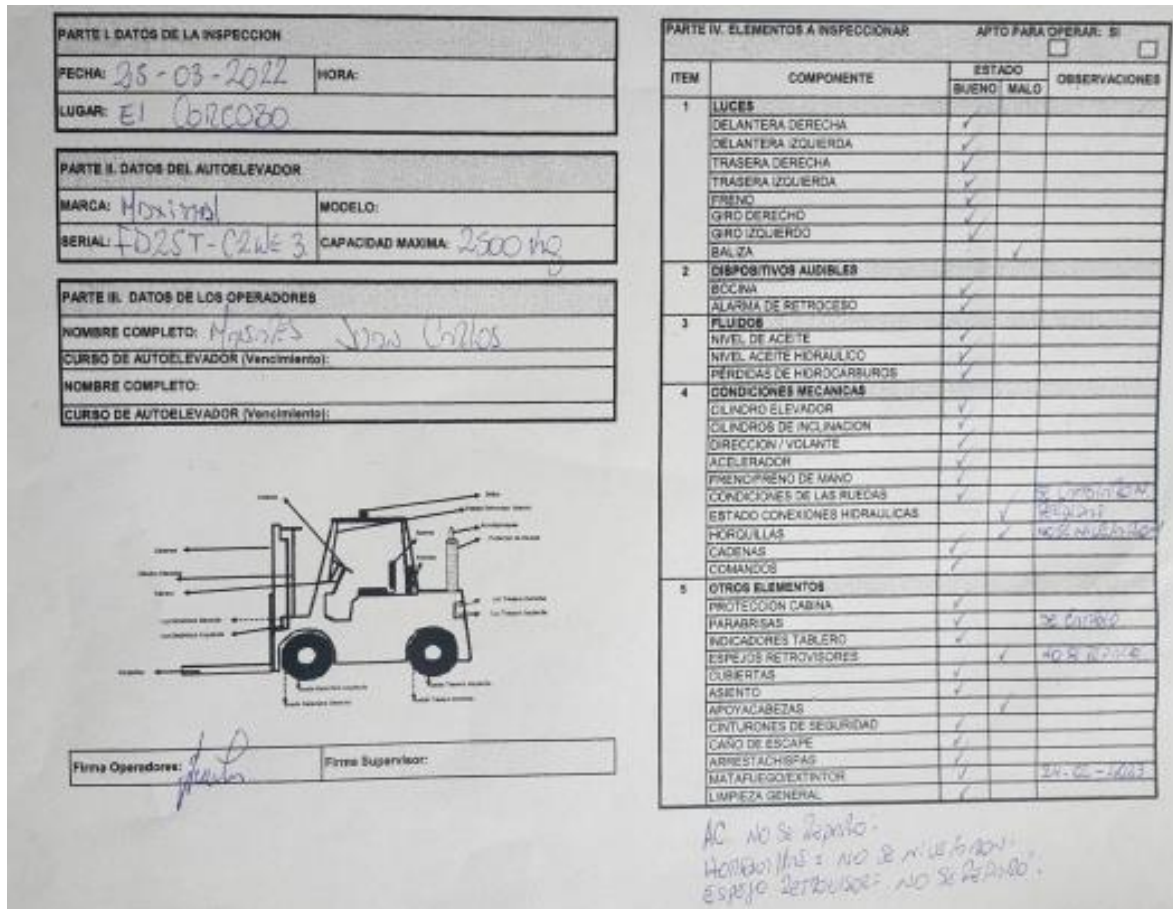 PARTE I. DATOS DE LA INSPECCION
FECHA: 25-03-2022 HORA:
LUGAR: El CORCOBO
PARTE II. DATOS DEL AUTOELEVADOR
MARCA: Maximal MODELO:
SERIAL: FD25T-C2WE3 CAPACIDAD MAXIMA: 2500 kg
PARTE III. DATOS DE LOS OPERADORES
NOMBRE COMPLETO: Juan Carlos
CURSO DE AUTOELEVADOR (Vencimiento):
NOMBRE COMPLETO:
CURSO DE AUTOELEVADOR (Vencimiento):
Firma Operadores: Firma Supervisor:
PARTE IV. ELEMENTOS A INSPECCIONAR APTO PARA OPERAR: SI
ITEM COMPONENTE ESTADO OBSERVACIONES
BUENO MALO
1 LUCES
DELANTERA DERECHA
DELANTERA IZQUIERDA
TRASERA DERECHA
TRASERA IZQUIERDA
FRENO
GIRO DERECHO
GIRO IZQUIERDO
BALIZA
2 DISPOSITIVOS AUDIBLES
BOCINA
ALARMA DE RETROCESO
3 FLUIDOS
NIVEL DE ACEITE
NIVEL ACEITE HIDRAULICO
PÉRDIDAS DE HIDROCARBUROS
4 CONDICIONES MECANICAS
CILINDRO ELEVADOR
CILINDROS DE INCLINACION
DIRECCION / VOLANTE
ACELERADOR
FRENO/FRENO DE MANO
CONDICIONES DE LAS RUEDAS SE
ESTADO CONEXIONES HIDRAULICAS
HORQUILLAS NO SE NIVELARON
CADENAS
COMANDOS
5 OTROS ELEMENTOS
PROTECCIÓN CABINA
PARABRISAS SE CAMBIO
INDICADORES TABLERO
ESPEJOS RETROVISORES NO SE
CUBIERTAS
ASIENTO
APOYACABEZAS
CINTURONES DE SEGURIDAD
CAÑO DE ESCAPE
ARRESTACHISPAS
MATAFUEGO/EXTINTOR 24-02-2023
LIMPIEZA GENERAL
AC NO SE REPARO.
HORQUILLAS: NO SE NIVELARON.
ESPEJO RETROVISOR: NO SE REPARO.